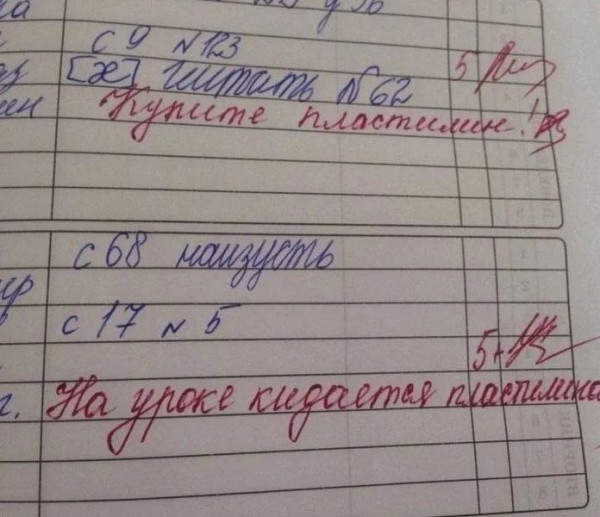 с 9 №123
[ж] читать №62
5
Купите пластилин!
с 68 наизусть
с 17 № 5
5+
г. На уроке кидается пластилино